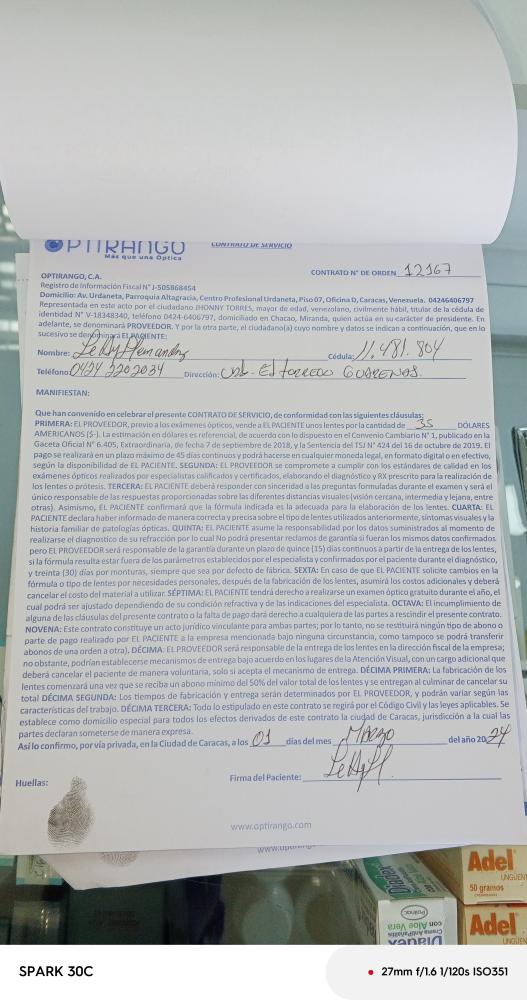 OPTIRANGO
Más que una Óptica
CONTRATO DE SERVICIO
CONTRATO N° DE ORDEN 12167
OPTIRANGO, C.A.
Registro de Información Fiscal N° J-505868454
Domicilio: Av. Urdaneta, Parroquia Altagracia, Centro Profesional Urdaneta, Piso 07, Oficina D, Caracas, Venezuela. 04246406797
Representada en este acto por el ciudadano JHONNY TORRES, mayor de edad, venezolano, civilmente hábil, titular de la cédula de
identidad N° V-18348340, teléfono 0424-6406797, domiciliado en Chacao, Miranda, quien actúa en su carácter de presidente. En
adelante, se denominará PROVEEDOR. Y por la otra parte, el ciudadano(a) cuyo nombre y datos se indican a continuación, que en lo
sucesivo se denominará EL PACIENTE:
Nombre: Leddy Hernandez Cédula: 11.481.804
Teléfono: 0424 2202034 Dirección: Urb. El torreon Guarenas.
MANIFIESTAN:
Que han convenido en celebrar el presente CONTRATO DE SERVICIO, de conformidad con las siguientes cláusulas:
PRIMERA: EL PROVEEDOR, previo a los exámenes ópticos, vende a EL PACIENTE unos lentes por la cantidad de 35 DÓLARES
AMERICANOS ($-). La estimación en dólares es referencial, de acuerdo con lo dispuesto en el Convenio Cambiario N° 1, publicado en la
Gaceta Oficial N° 6.405, Extraordinaria, de fecha 7 de septiembre de 2018, y la Sentencia del TSJ N° 424 del 16 de octubre de 2019. El
pago se realizará en un plazo máximo de 45 días continuos y podrá hacerse en cualquier moneda legal, en formato digital o en efectivo,
según la disponibilidad de EL PACIENTE. SEGUNDA: EL PROVEEDOR se compromete a cumplir con los estándares de calidad en los
exámenes ópticos realizados por especialistas calificados y certificados, elaborando el diagnóstico y RX prescrito para la realización de
los lentes o prótesis. TERCERA: EL PACIENTE deberá responder con sinceridad a las preguntas formuladas durante el examen y será el
único responsable de las respuestas proporcionadas sobre las diferentes distancias visuales (visión cercana, intermedia y lejana, entre
otras). Asimismo, EL PACIENTE confirmará que la fórmula indicada es la adecuada para la elaboración de los lentes. CUARTA: EL
PACIENTE declara haber informado de manera correcta y precisa sobre el tipo de lentes utilizados anteriormente, síntomas visuales y la
historia familiar de patologías ópticas. QUINTA: EL PACIENTE asume la responsabilidad por los datos suministrados al momento de
realizarse el diagnóstico de su refracción por lo cual No podrá presentar reclamos de garantía si fueran los mismos datos confirmados
pero EL PROVEEDOR será responsable de la garantía durante un plazo de quince (15) días continuos a partir de la entrega de los lentes,
si la fórmula resulta estar fuera de los parámetros establecidos por el especialista y confirmados por el paciente durante el diagnóstico,
y treinta (30) días por monturas, siempre que sea por defecto de fábrica. SEXTA: En caso de que EL PACIENTE solicite cambios en la
fórmula o tipo de lentes por necesidades personales, después de la fabricación de los lentes, asumirá los costos adicionales y deberá
cancelar el costo del material a utilizar. SÉPTIMA: EL PACIENTE tendrá derecho a realizarse un examen óptico gratuito durante el año, el
cual podrá ser ajustado dependiendo de su condición refractiva y de las indicaciones del especialista. OCTAVA: El incumplimiento de
alguna de las cláusulas del presente contrato o la falta de pago dará derecho a cualquiera de las partes a rescindir el presente contrato.
NOVENA: Este contrato constituye un acto jurídico vinculante para ambas partes; por lo tanto, no se restituirá ningún tipo de abono o
parte de pago realizado por EL PACIENTE a la empresa mencionada bajo ninguna circunstancia, como tampoco se podrá transferir
abonos de una orden a otra). DÉCIMA: EL PROVEEDOR será responsable de la entrega de los lentes en la dirección fiscal de la empresa;
no obstante, podrían establecerse mecanismos de entrega bajo acuerdo en los lugares de la Atención Visual, con un cargo adicional que
deberá cancelar el paciente de manera voluntaria, solo si acepta el mecanismo de entrega. DÉCIMA PRIMERA: La fabricación de los
lentes comenzará una vez que se reciba un abono mínimo del 50% del valor total de los lentes y se entregan al culminar de cancelar su
total DÉCIMA SEGUNDA: Los tiempos de fabricación y entrega serán determinados por EL PROVEEDOR, y podrán variar según las
características del trabajo. DÉCIMA TERCERA: Todo lo estipulado en este contrato se regirá por el Código Civil y las leyes aplicables. Se
establece como domicilio especial para todos los efectos derivados de este contrato la ciudad de Caracas, jurisdicción a la cual las
partes declaran someterse de manera expresa.
Así lo confirmo, por vía privada, en la Ciudad de Caracas, a los 01 días del mes Marzo del año 2024
Huellas:
Firma del Paciente:
www.optirango.com
Adel
UNGÜEN
50 gramos
Adel
UNGÜEN
Diadex
con Aloe Vera
SPARK 30C
27mm f/1.6 1/120s ISO351